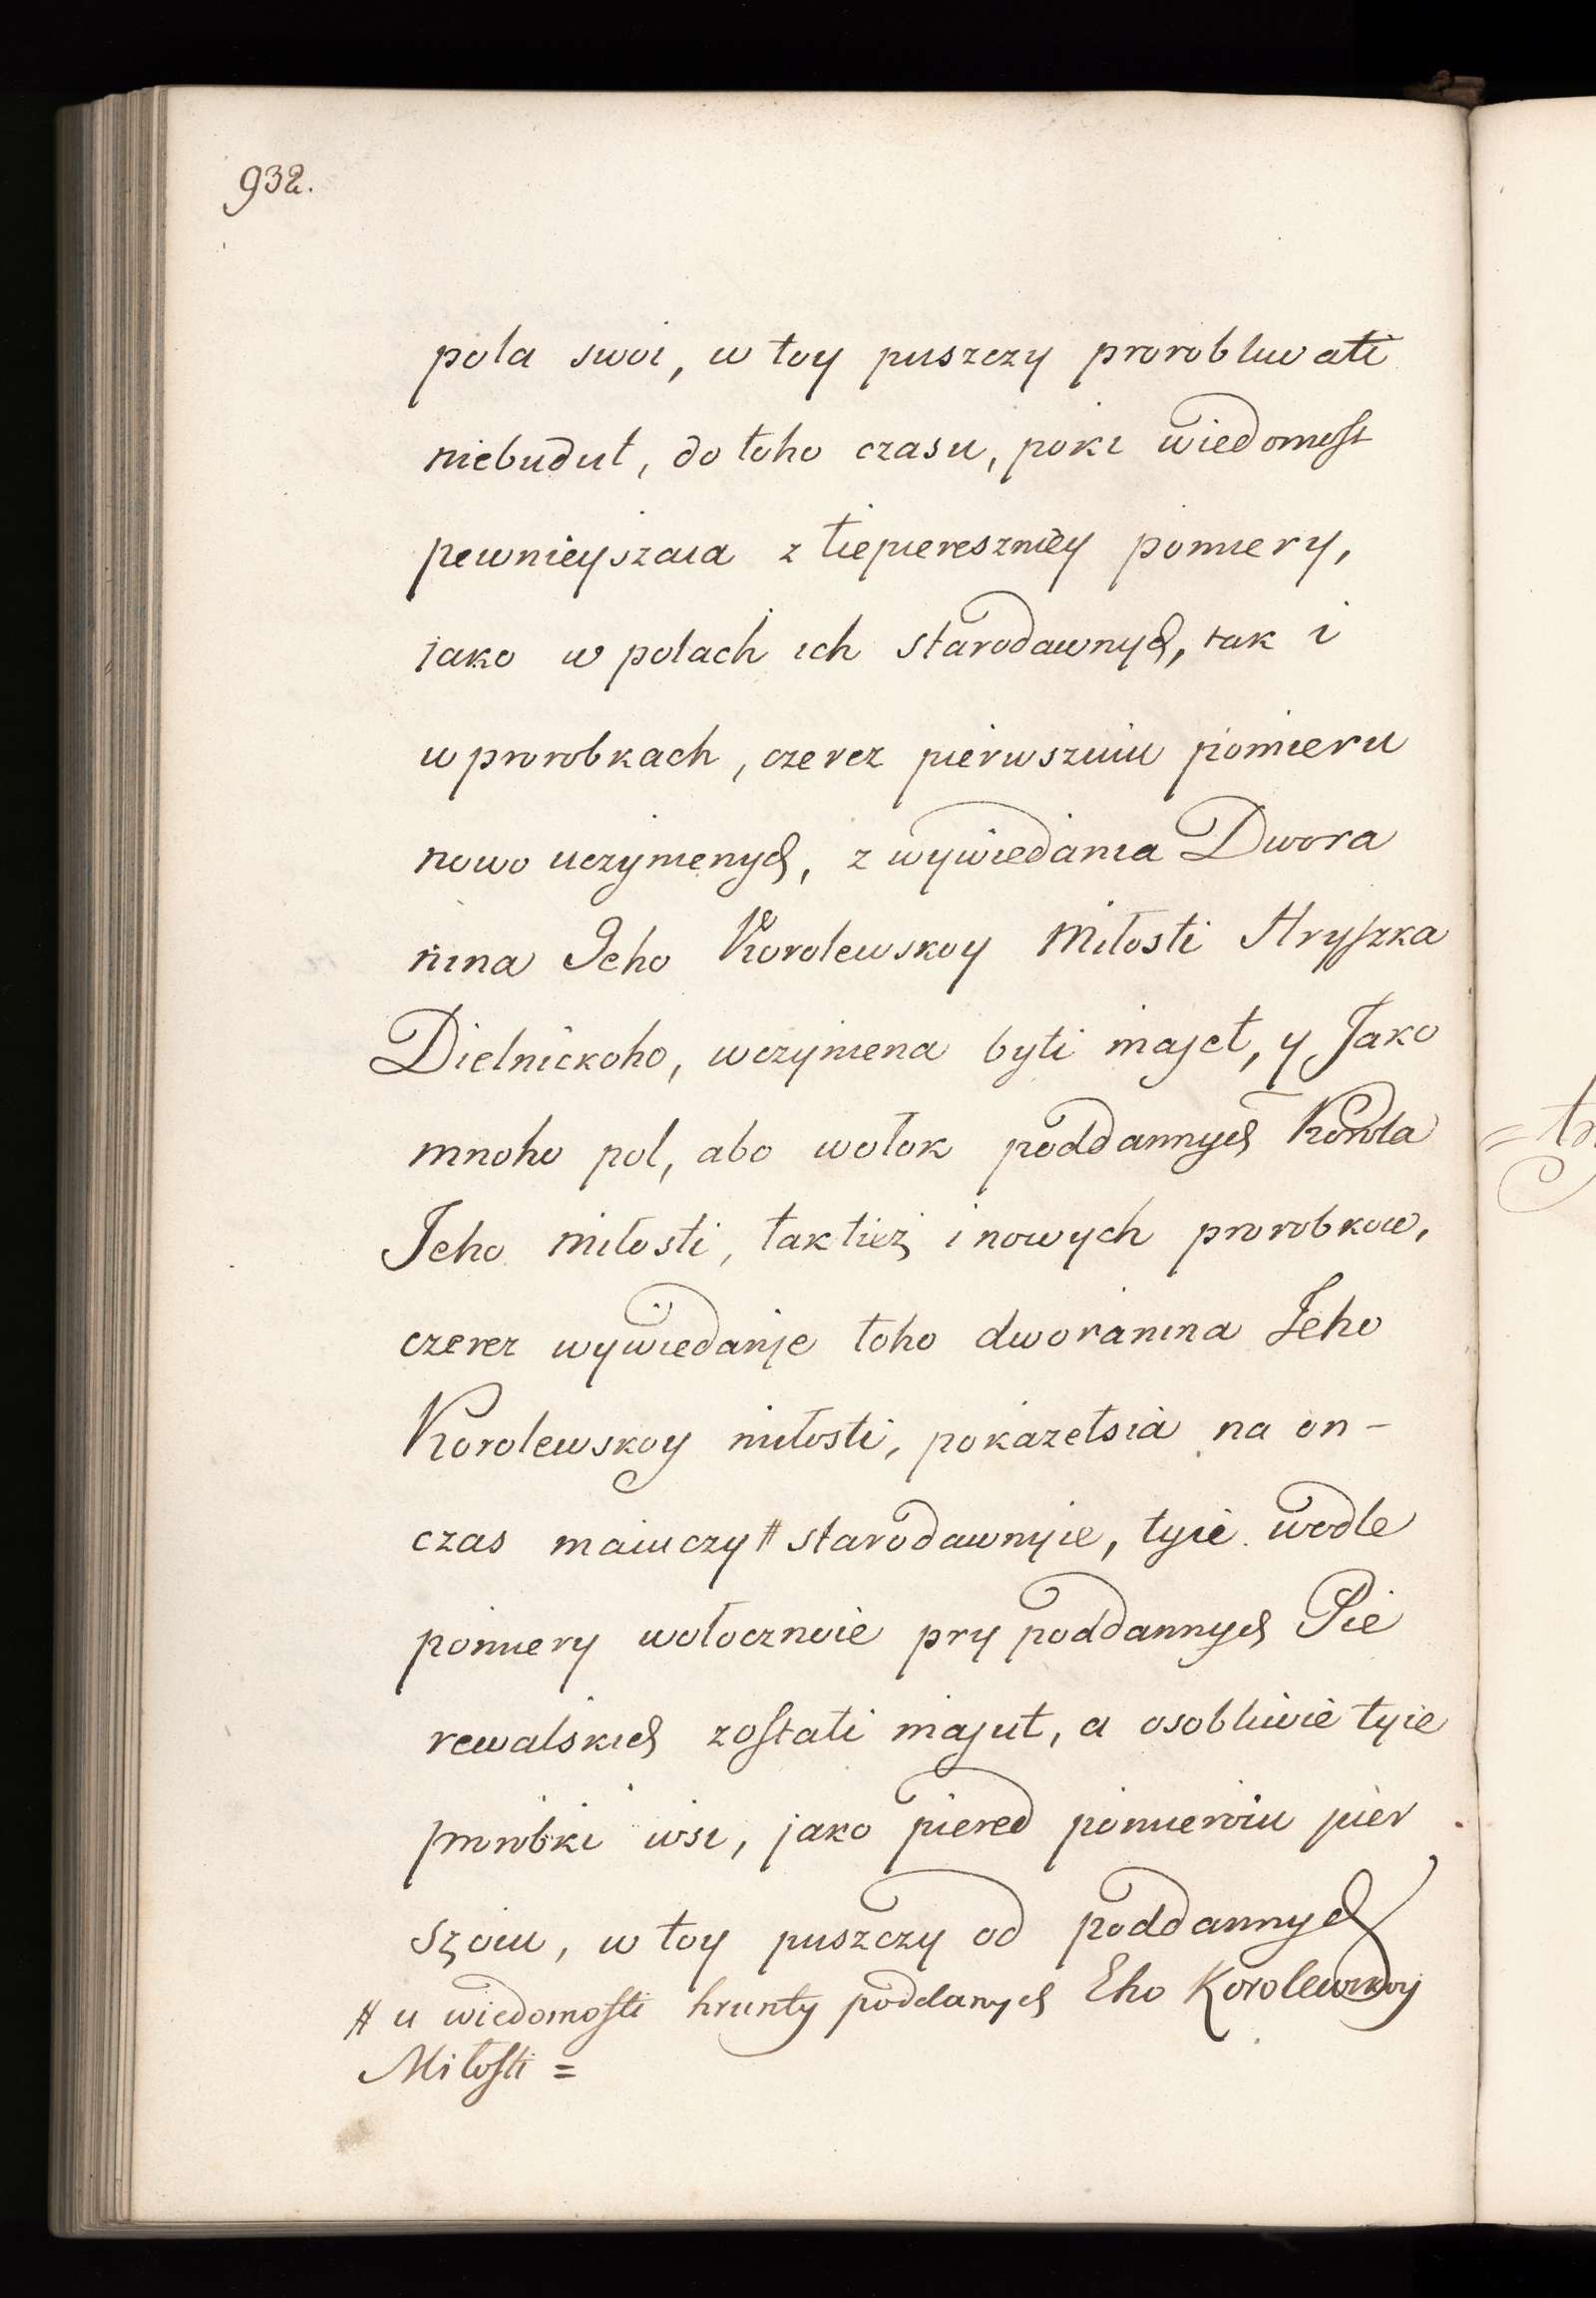 932.
pola swoi, w toy puszczy prorobliwati
niebudut, do toho czasu, poki wiedomost
pewnieyszaia z tiepiereszniey pomiery,
iako w polach ich starodawnych, tak i
w prorobkach, czerez pierwszuiu pomieru
nowo uczynienych, z wywiedania Dwora
nina Jeho Korolewskoy Miłosti Hryszka
Dielnickoho, uczyniena byti majet, y Jako
mnoho pol, abo wołok poddannych Korola
Jeho miłosti, taktież i nowych prorobkow,
czerez wywiedanje toho dworanina Jeho
Korolewskoy miłosti, pokażetsia na on-
czas maiuczy # starodawnyie, tyie wodle
pomiery wołocznoie pry poddannych Pie
rewalskich zostati majut, a osobliwie tyie
prorobki wsi, jako piered pomieroiu pier
szoiu, w toy puszczy od poddannych
# u wiedomosti hrunty poddanych Eho Korolewskoy
Miłosti =